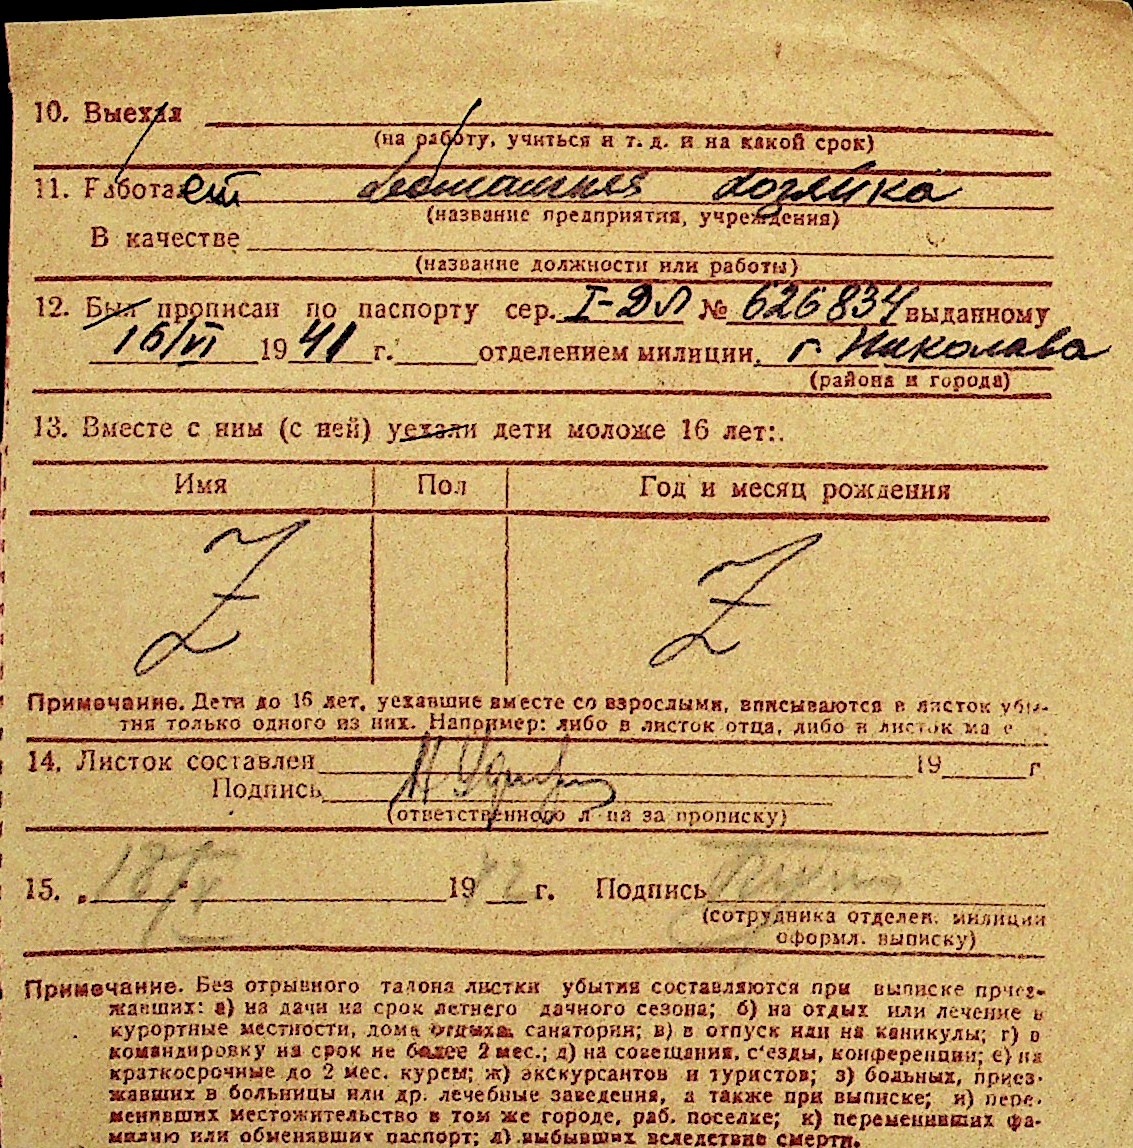 10. Выехал
(на работу, учиться и т. д. и на какой срок)
11. Работает домашняя хозяйка
(название предприятия, учреждения)
В качестве
(название должности или работы)
12. Был прописан по паспорту сер. I-ДЛ № 626834 выданному
16/VI 1941 г. отделением милиции, г. Николаева
(района и города)
13. Вместе с ним (с ней) уехали дети моложе 16 лет:
Имя Пол Год и месяц рождения
Z Z
Примечание. Дети до 16 лет, уехавшие вместе со взрослыми, вписываются в листок убы-
тия только одного из них. Например: либо в листок отца, либо в листок
14. Листок составлен 19 г
Подпись
(ответственного л на за прописку)
15. 18/V 1942 г. Подпись
(сотрудника отделен. милиции
оформл. выписку)
Примечание. Без отрывного талона листки убытия составляются при выписке приез-
жавших: а) на дачи на срок летнего дачного сезона; б) на отдых или лечение в
курортные местности, дома отдыха, санатории; в) в отпуск или на каникулы; г) в
командировку на срок не более 2 мес.; д) на совещания, с'езды, конференции; е) на
краткосрочные до 2 мес. курсы; ж) экскурсантов и туристов; з) больных, приез-
жавших в больницы или др. лечебные заведения, а также при выписке; и) пере-
менивших местожительство в том же городе, раб. поселке; к) переменивших фа-
милию или обменявших паспорт; л) выбывших вследствие смерти.